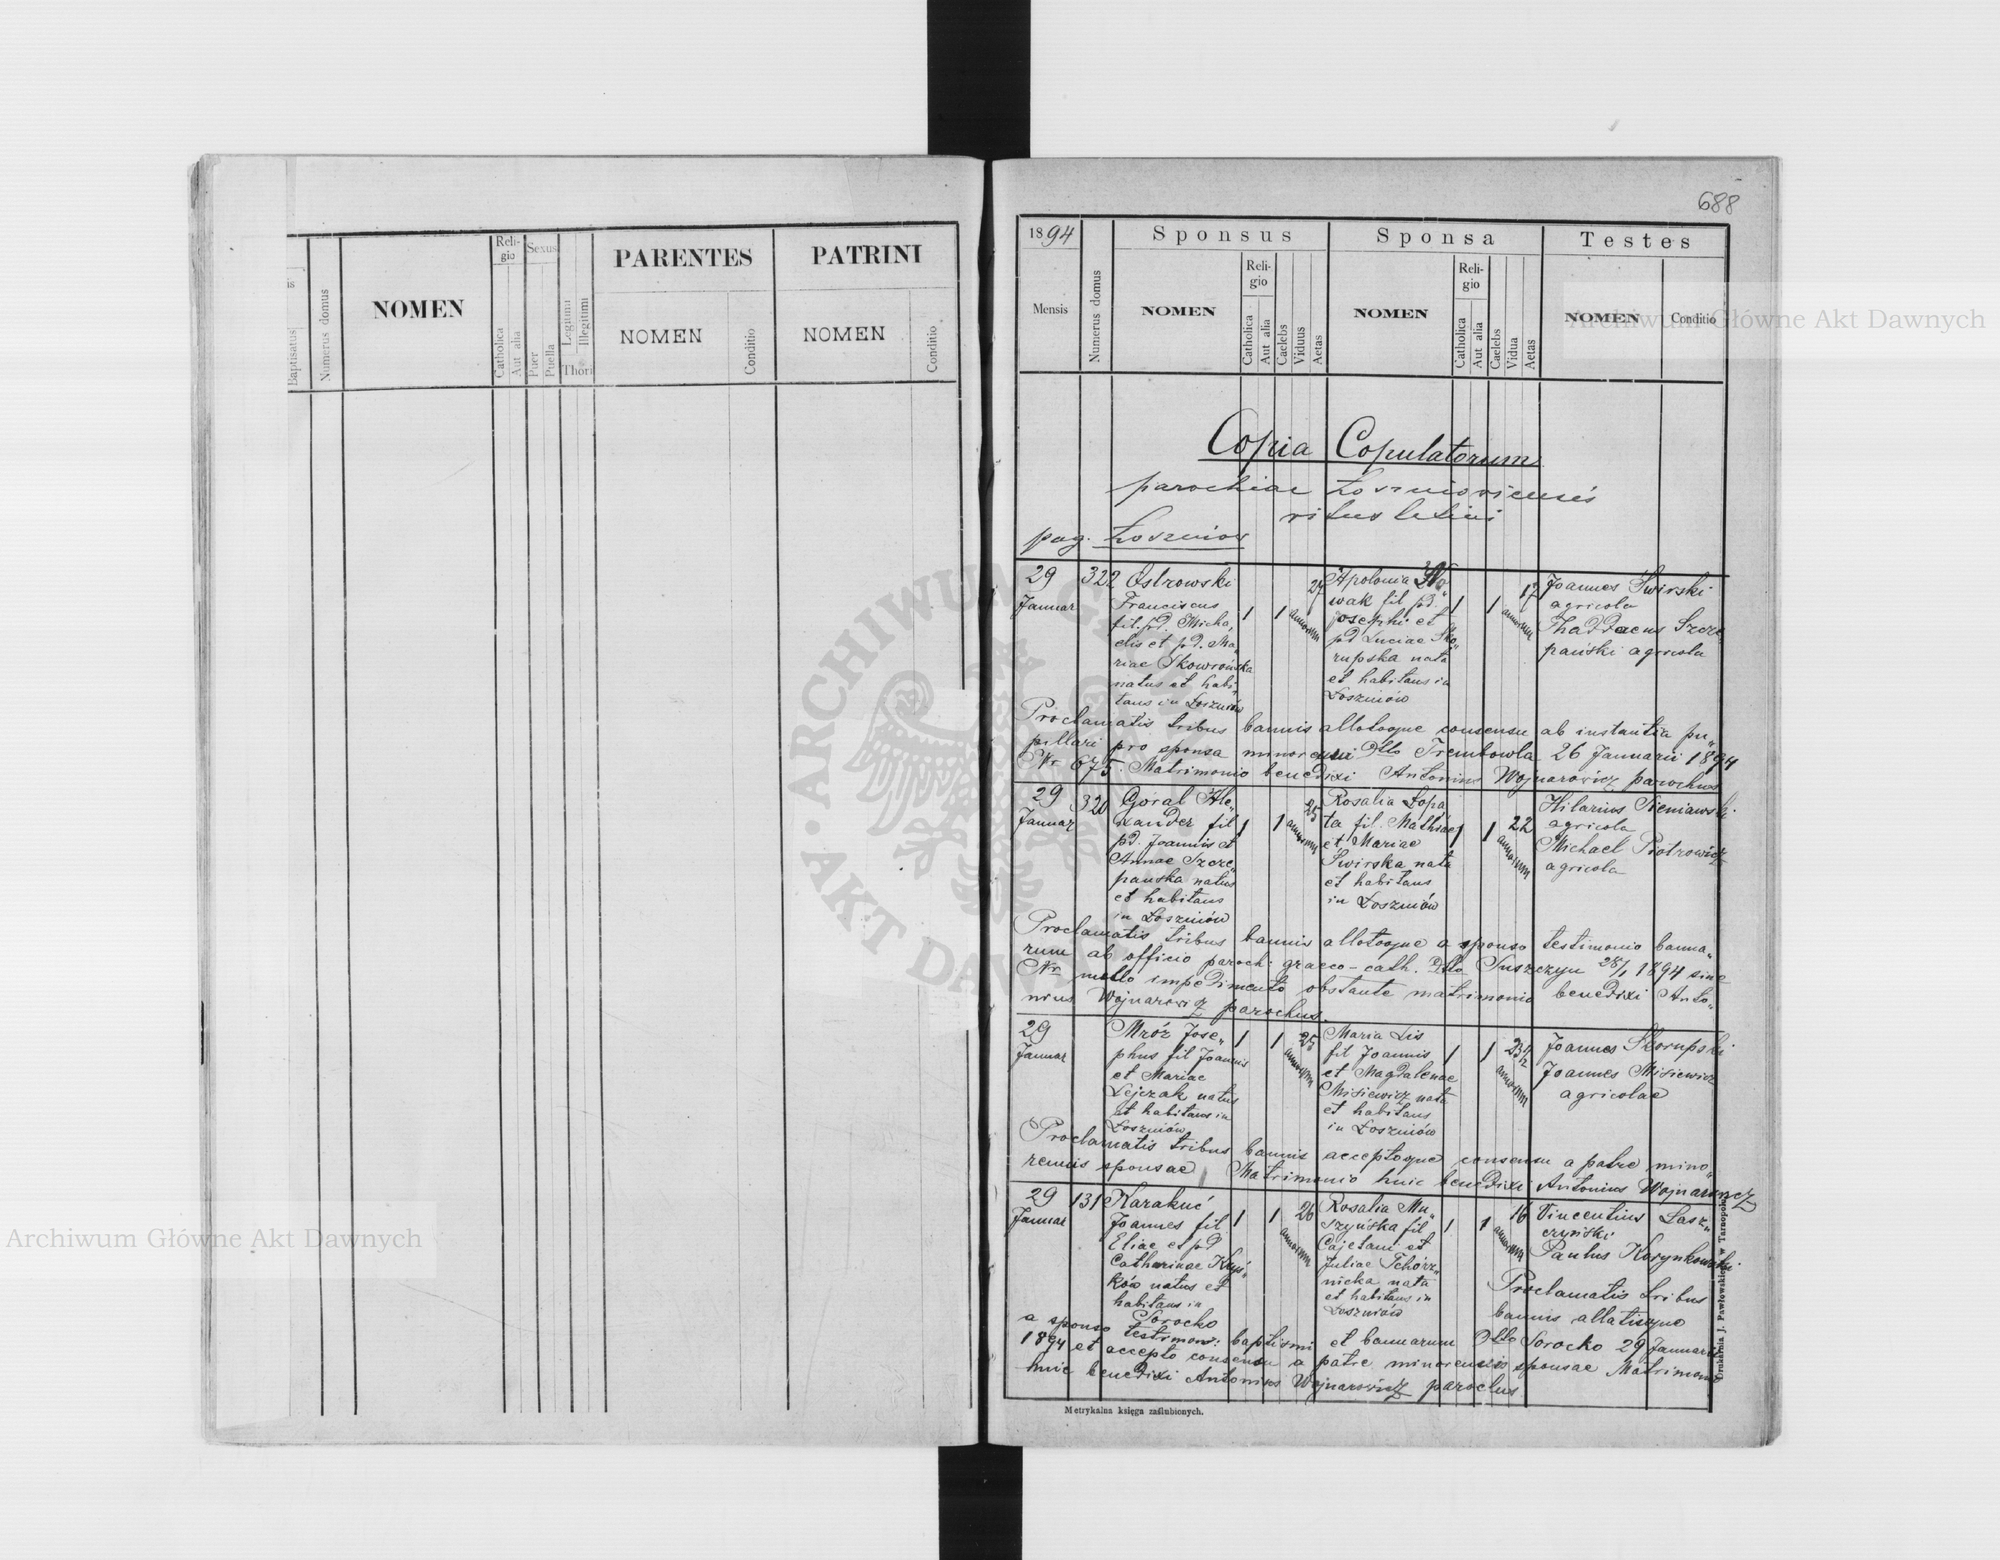 688
is
Baptisatus
Numerus domus
NOMEN
Reli-
gio
Catholica
Aut alia
Sexus
Puer
Puella
Legitimi
Illegitimi
Thori
PARENTES
NOMEN
Conditio
PATRINI
NOMEN
Conditio
1894
Mensis
Numerus domus
Sponsus
NOMEN
Reli-
gio
Catholica
Aut alia
Caelebs
Viduus
Aetas
Sponsa
NOMEN
Reli-
gio
Catholica
Aut alia
Caelebs
Vidua
Aetas
Testes
NOMEN
Conditio
Copia Copulatorum
parochiae Łosznioviensis
ritus latini
pag. Łoszniów
29
Januar
322
Ostrowski
Franciscus
fil. pd. Micha„
elis et pd. Ma„
riae Skowrońska
natus et habi„
tans in Łoszniów
1
1
27
annorum
Apolonia No„
wak fil pd.
Josephi et
pd Luciae Sko„
rupska nata
et habitans in
Łoszniów
1
1
17
annorum
Joannes Swirski
agricola
Thaddaeus Szcze„
pański agricola
Proclamatis tribus bannis allatoque consensu ab instantia pu„
pillari pro sponsa minorenni Dtto Trembowla 26 Januarii 1894
Nr 675. Matrimonio benedixi Antonius Wojnarowicz parochus
29
Januar
320
Góral Ale„
xander fil
pd. Joannis et
Annae Szcze„
pańska natus
et habitans
in Łoszniów
1
1
25
annorum
Rosalia Łopa
ta fil. Mathiae
et Mariae
Swirska nata
et habitans
in Łoszniów
1
1
22
annorum
Hilarius Sieniawski
agricola
Michael Piotrowicz
agricola
Proclamatis tribus bannis allatoque a sponso testimonio banna„
rum ab officio paroch: graeco-cath. Dtto Suszczyn 28/1 1894 sine
Nr nullo impedimento obstante matrimonio benedixi Anto„
nius Wojnarowicz parochus.
29
Januar
Mróz Jose„
phus fil Joannis
et Mariae
Lejczak natus
et habitans in
Łoszniów
1
1
25
annorum
Maria Lis
fil Joannis
et Magdalenae
Misiewicz nata
et habitans
in Łoszniów
1
1
23 1/2
annorum
Joannes Skorupski
Joannes Misiewicz
agricolae
Proclamatis tribus bannis acceptoque consensu a patre mino„
rennis sponsae Matrimonio huic benedixi Antonius Wojnarowicz
29
Januar
131
Karakuć
Joannes fil
Eliae et pd
Catharinae
natus et
habitans in
Sorocko
1
1
26
annorum
Rosalia Mu„
szyńska fil
Cajetani et
Juliae Tchórz„
nicka nata
et habitans in
Łoszniów
1
1
16
annorum
Vincentius Lasz„
czyński
Paulus Korynkowski
Proclamatis tribus
bannis allatisque
a sponso testimon: baptismi et bannarum Dtto Sorocko 29 Januarii
1894 et accepto consensu a patre minorennis sponsae Matrimonio
huic benedixi Antonius Wojnarowicz parochus
Metrykalna księga zaślubionych.
Drukarnia J. Pawłowskiego w Tarnopolu.
Archiwum Główne Akt Dawnych
Archiwum Główne Akt Dawnych
ARCHIWUM GŁÓWNE AKT DAWNYCH